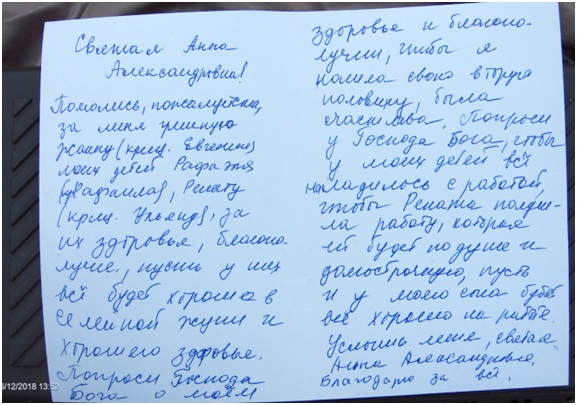 Святая Анна
Александровна!
Помолись, пожалуйста,
за меня грешную
Жанну (крещ. Евгению)
моих детей Рафаэля
(Рафаила), Ренату
(крещ. Ульяну), за
их здоровье, благопо-
лучие, пусть у них
всё будет хорошо в
семейной жизни и
хорошего здоровье.
Попроси Господа
Бога о моём
здоровье и благопо-
лучии, чтобы я
нашла свою вторую
половину, была
счастлива. Попроси
у Господа Бога, чтобы
у моих детей всё
наладилось с работой,
чтобы Рената получи-
ла работу, которая
ей будет по душе и
пусть
и у моего сына будет
всё хорошо на работе.
Услышь меня, святая
Анна Александровна.
Благодарю за всё.
/12/2018 13:52